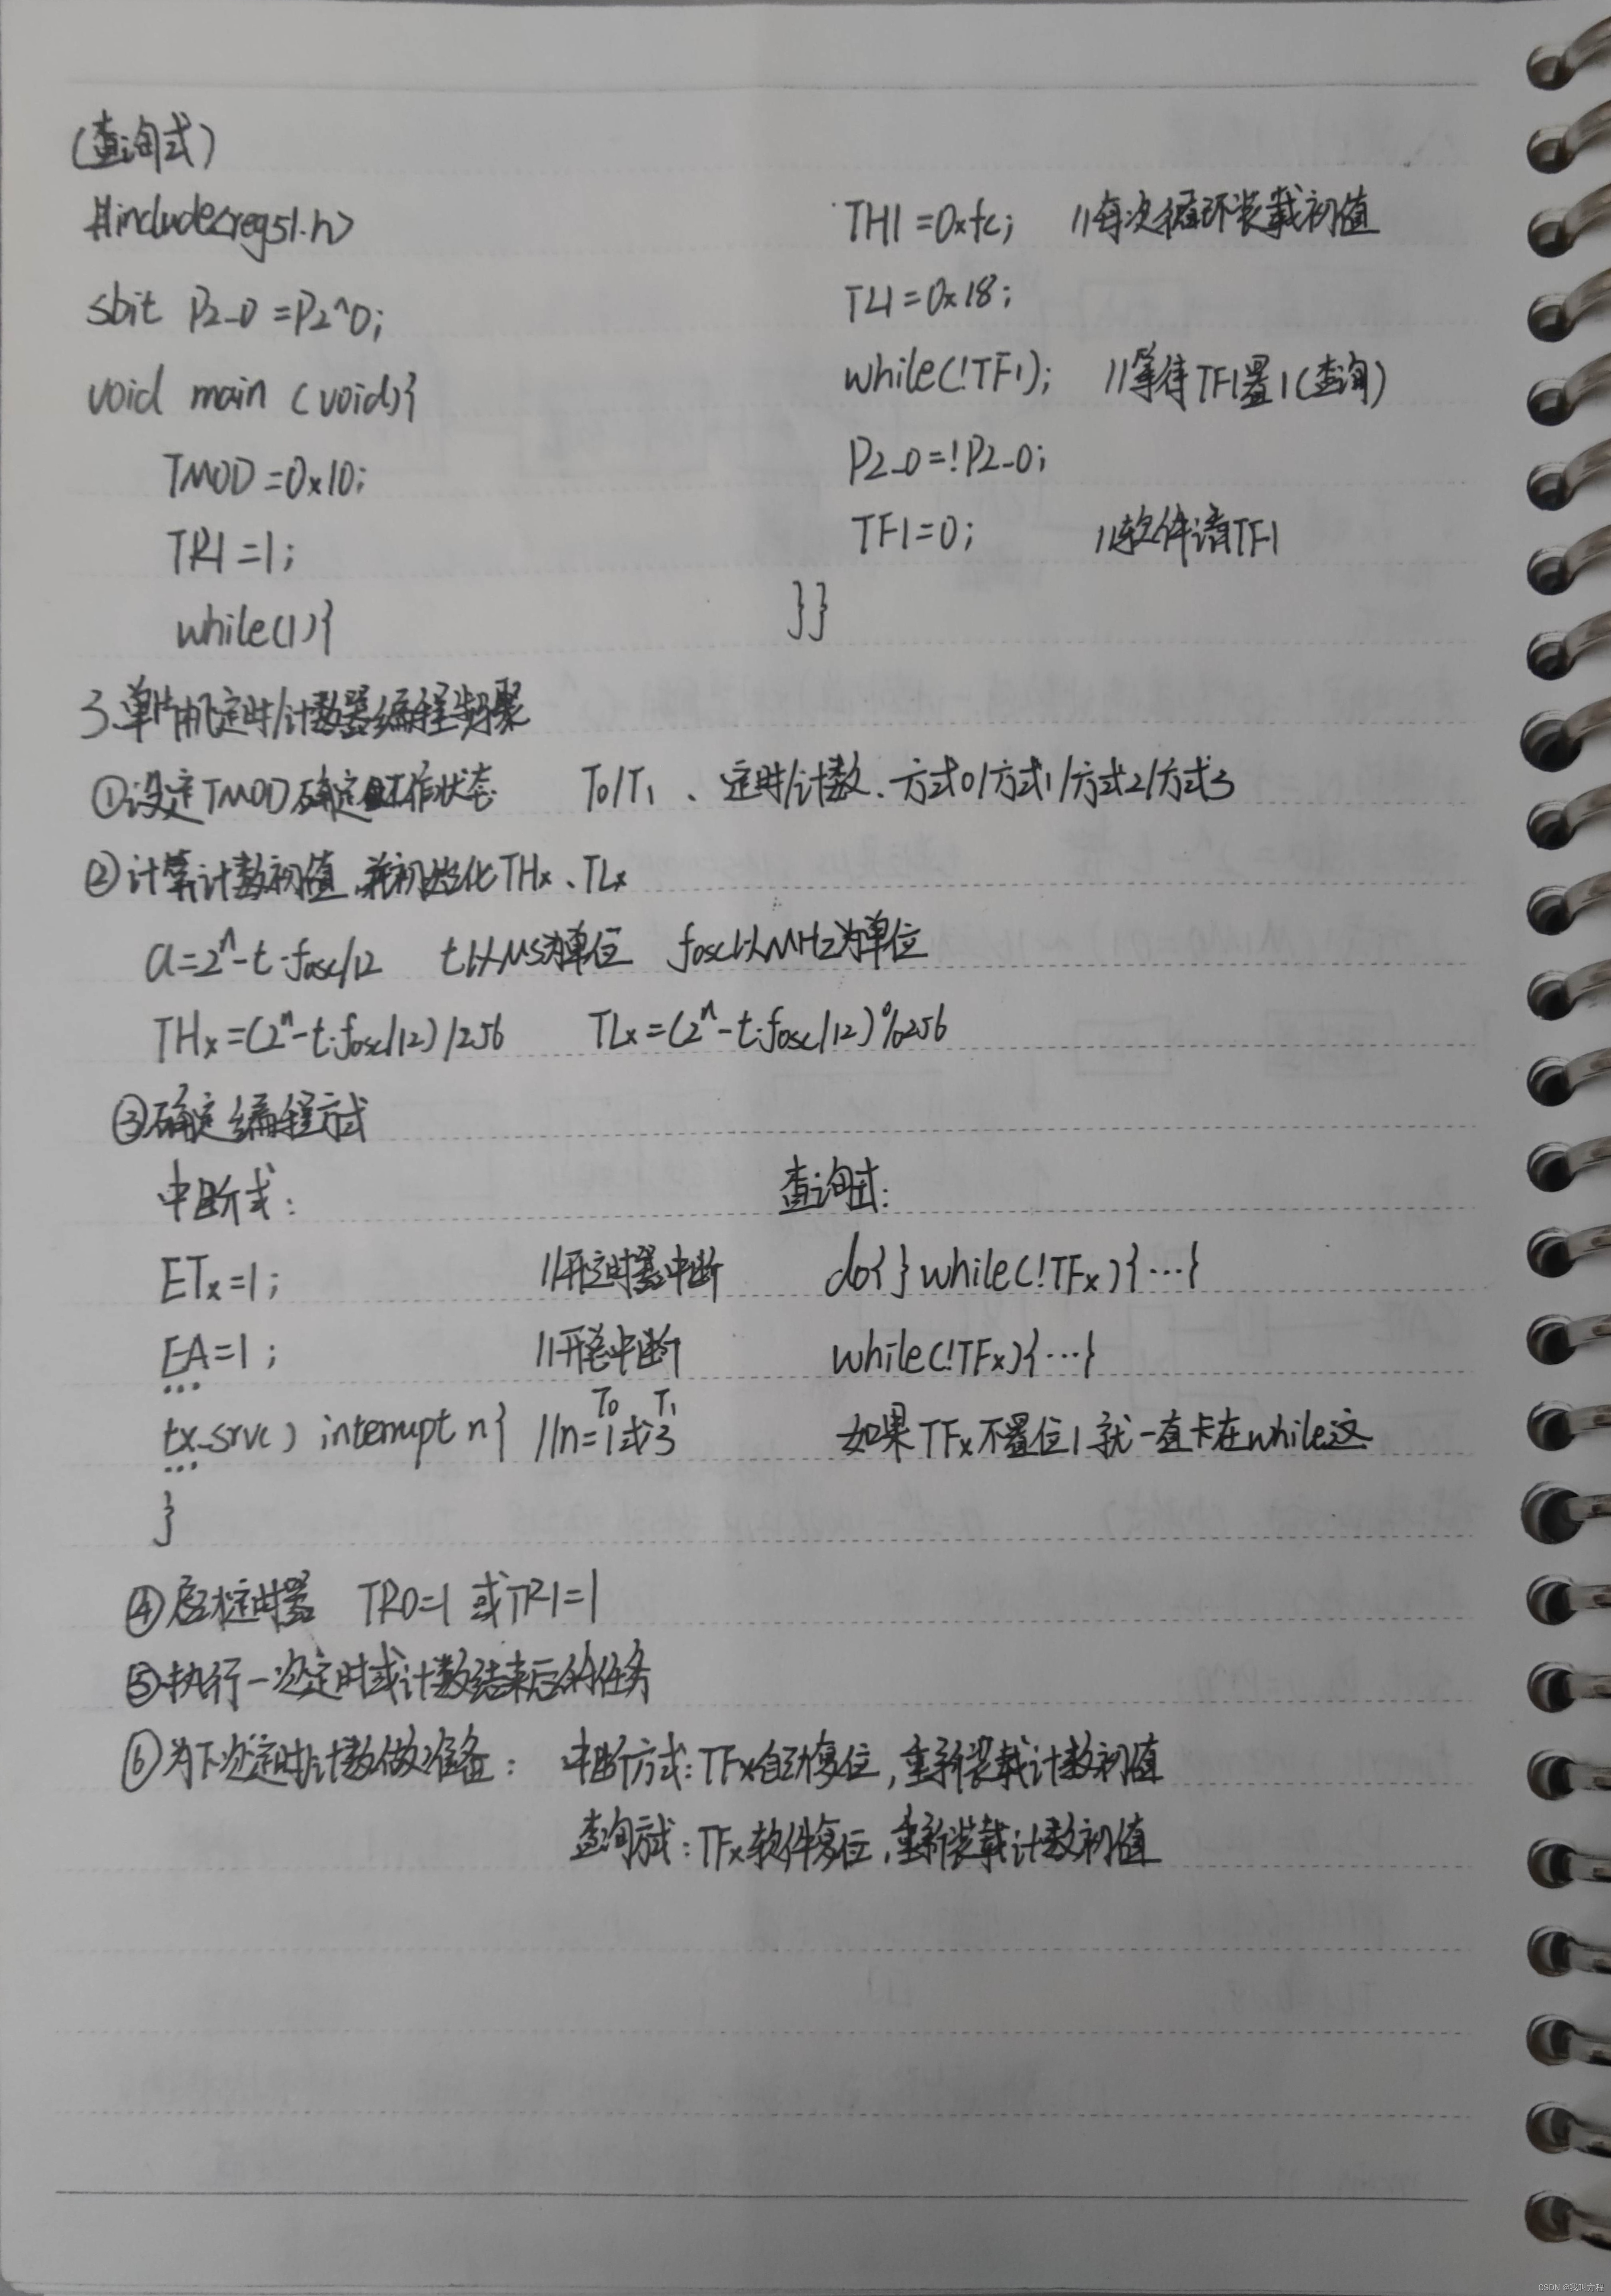 (查询式)
#include<reg51.h>
sbit P2_0=P2^0;
void main (void){
TMOD=0x10;
TR1=1;
while(1){
TH1=0xfc; //每次循环装载初值
TL1=0x18;
while(!TF1); //等待TF1置1(查询)
P2_0=!P2_0;
TF1=0; //软件清TF1
}}
3.单片机定时/计数器编程步骤
①设定TMOD确定工作状态 T0/T1、定时/计数、方式0/方式1/方式2/方式3
②计算计数初值,并初始化THx、TLx
a=2ⁿ-t·fosc/12 t以μs为单位 fosc以MHz为单位
THx=(2ⁿ-t·fosc/12)/256 TLx=(2ⁿ-t·fosc/12)%256
③确定编程方式
中断式: 查询式:
ETx=1; //开定时器中断 do{}while(!TFx){…}
EA=1; //开总中断 while(!TFx){…}
…
T0 T1
tx_srv() interrupt n{ //n=1或3 如果TFx不置位1就一直卡在while这
…
}
④启动定时器 TR0=1或TR1=1
⑤执行一次定时或计数结束后的任务
⑥为下次定时/计数做准备: 中断方式:TFx自动复位,重新装载计数初值
查询方式:TFx软件复位,重新装载计数初值
CSDN @我叫方程